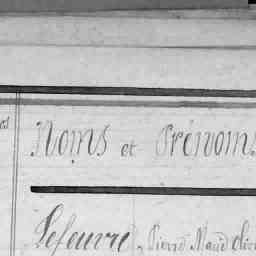 Noms et Prénoms
Lefeuvre, Pierre Marie